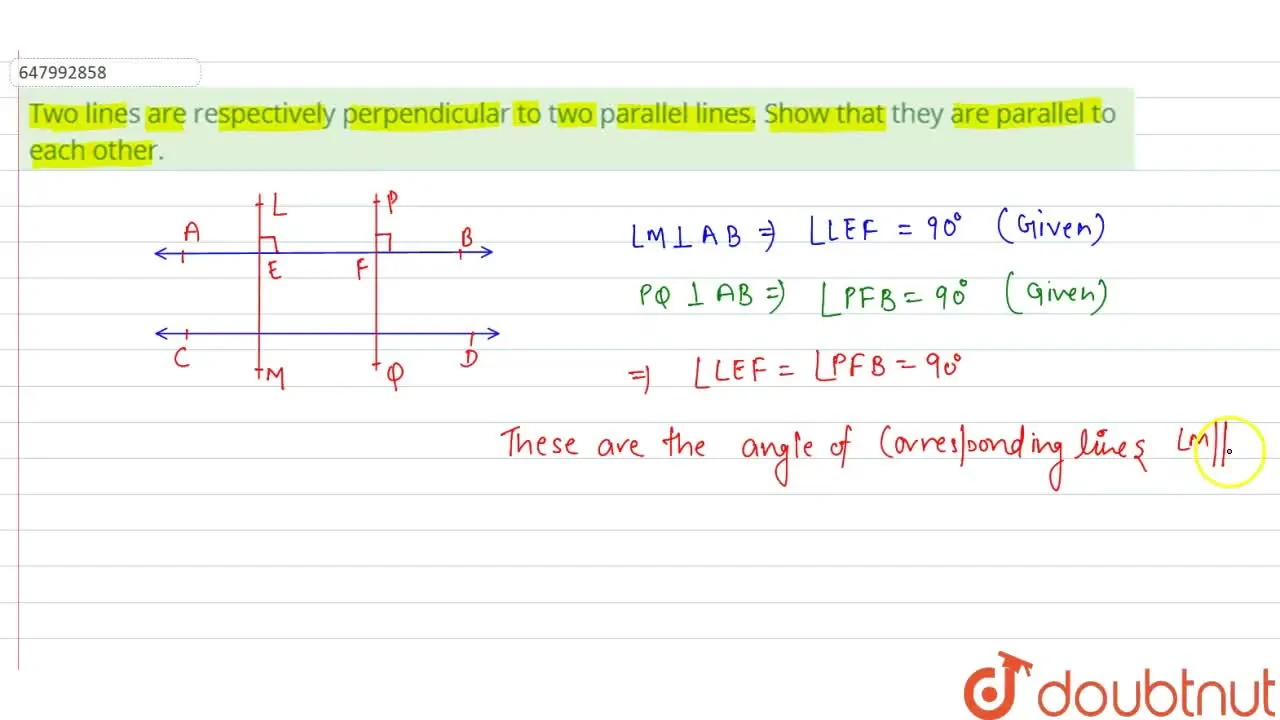 647992858
Two lines are respectively perpendicular to two parallel lines. Show that they are parallel to
each other.
L P
A B
E F
C D
M Q
LM ⊥ AB ⇒ ∠LEF = 90° (Given)
PQ ⊥ AB ⇒ ∠PFB = 90° (Given)
⇒ ∠LEF = ∠PFB = 90°
These are the angle of Corresponding lines LM||
doubtnut